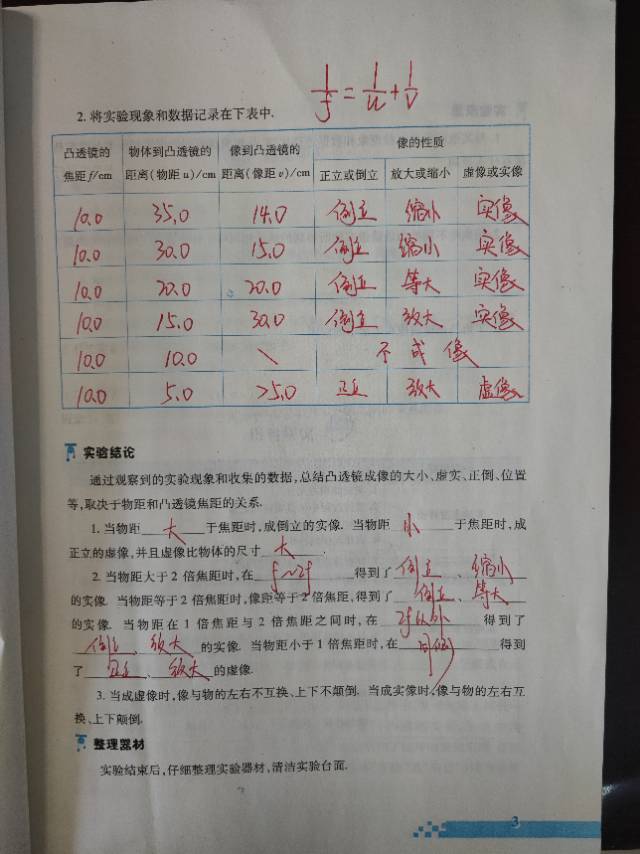 1/f = 1/u + 1/v
2. 将实验现象和数据记录在下表中.
凸透镜的焦距 f/cm 物体到凸透镜的距离(物距 u)/cm 像到凸透镜的距离(像距 v)/cm 像的性质
正立或倒立 放大或缩小 虚像或实像
10.0 35.0 14.0 倒立 缩小 实像
10.0 30.0 15.0 倒立 缩小 实像
10.0 20.0 20.0 倒立 等大 实像
10.0 15.0 30.0 倒立 放大 实像
10.0 10.0 \ 不成像
10.0 5.0 >5.0 正立 放大 虚像
实验结论
通过观察到的实验现象和收集的数据,总结凸透镜成像的大小、虚实、正倒、位置
等,取决于物距和凸透镜焦距的关系.
1. 当物距 大 于焦距时,成倒立的实像. 当物距 小 于焦距时,成
正立的虚像,并且虚像比物体的尺寸 大 .
2. 当物距大于 2 倍焦距时,在 f~2f 得到了 倒立 、 缩小
的实像. 当物距等于 2 倍焦距时,像距等于 2 倍焦距,得到了 倒立 、 等大
的实像. 当物距在 1 倍焦距与 2 倍焦距之间时,在 2f以外 得到了
倒立 、 放大 的实像. 当物距小于 1 倍焦距时,在 同侧 得到
了 正立 、 放大 的虚像.
3. 当成虚像时,像与物的左右不互换、上下不颠倒. 当成实像时,像与物的左右互
换、上下颠倒.
整理器材
实验结束后,仔细整理实验器材,清洁实验台面.
3